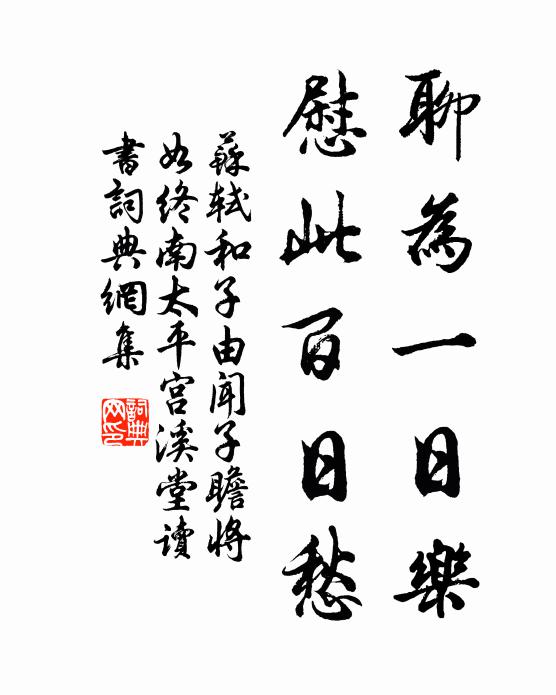 聊為一日樂
慰此百日愁
蘇軾和子由聞子瞻將
如終南太平宮溪堂讀
書詞典網集
詞典网印